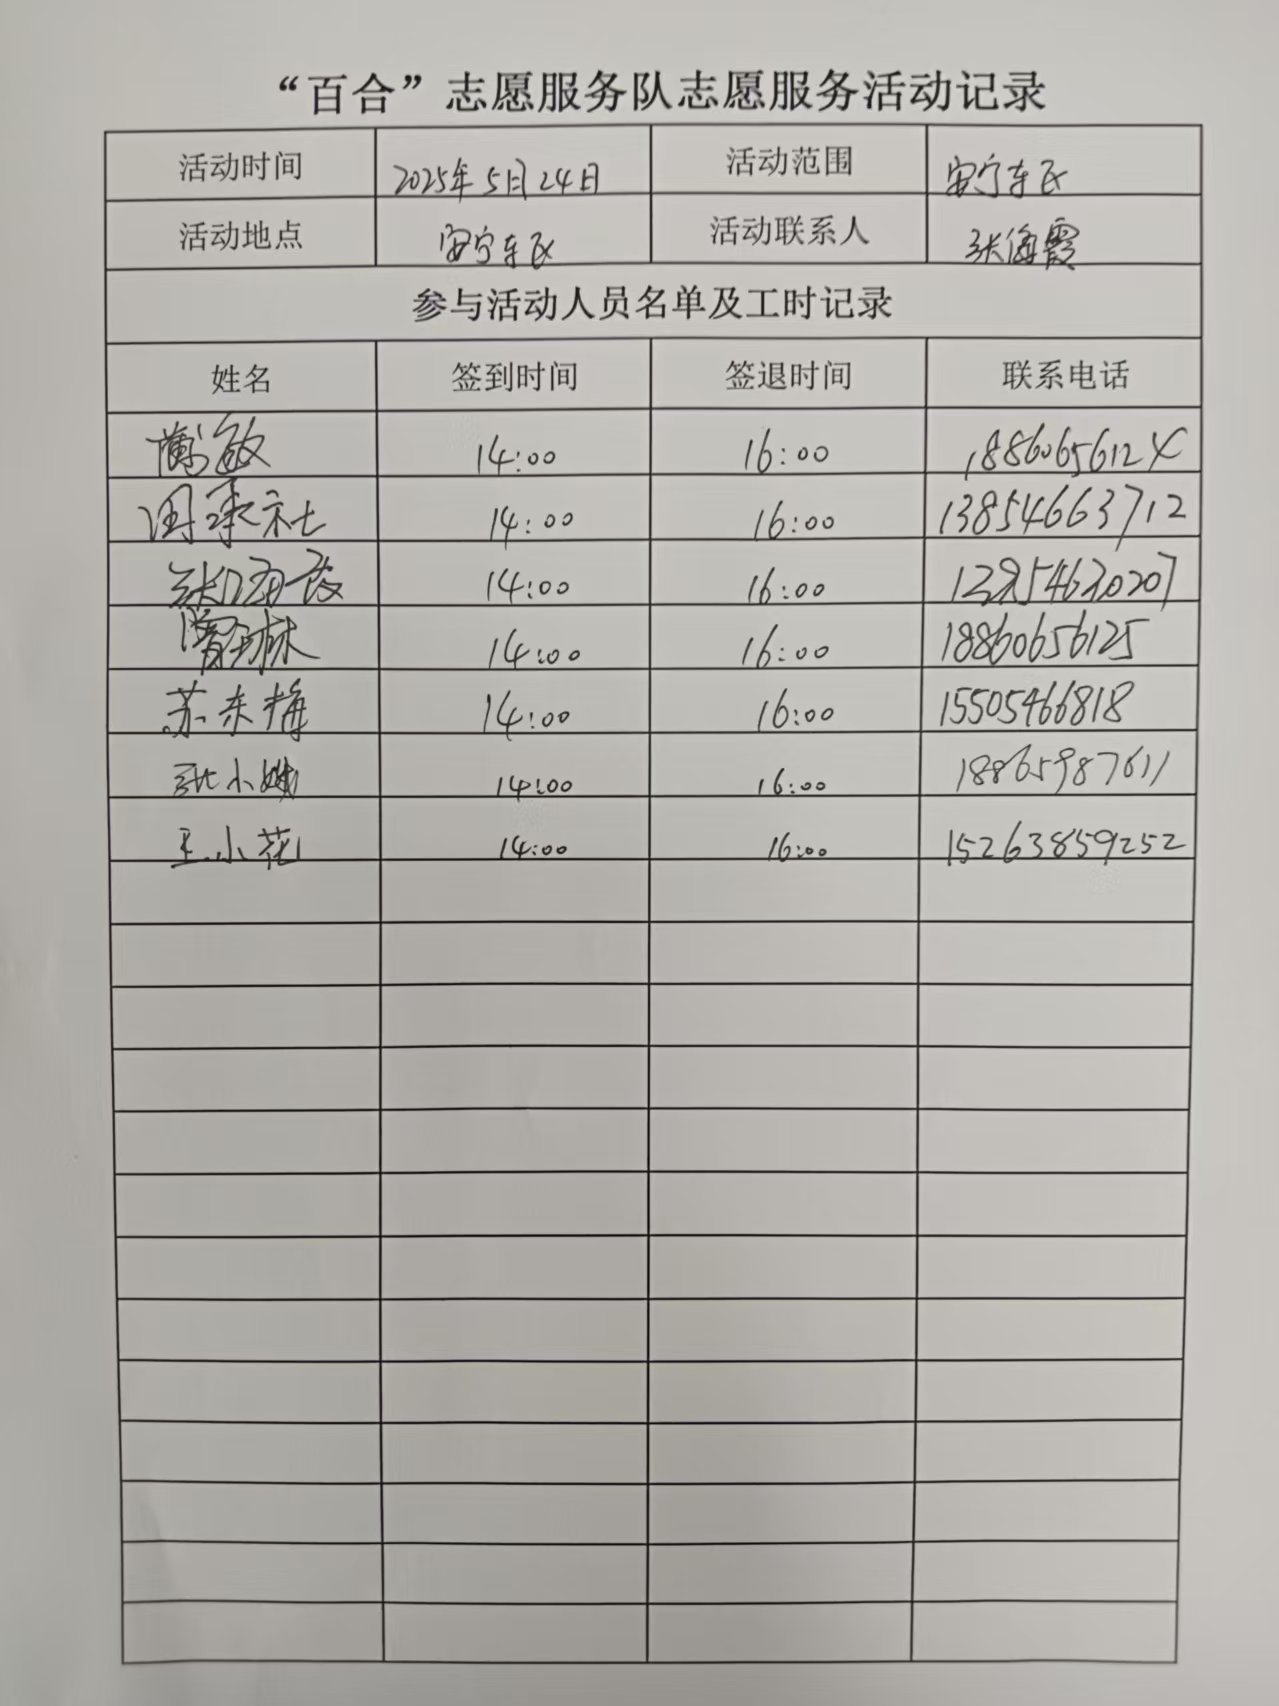 “百合”志愿服务队志愿服务活动记录
活动时间 2025年5月24日 活动范围 安宁东区
活动地点 安宁东区 活动联系人 张海霞
参与活动人员名单及工时记录
姓名 签到时间 签退时间 联系电话
敏 14:00 16:00 1886065612
周承社 14:00 16:00 13854663712
张海霞 14:00 16:00
林 14:00 16:00 18860656125
苏东梅 14:00 16:00 15505466818
张小娥 14:00 16:00 18865987611
王小花 14:00 16:00 15263859252